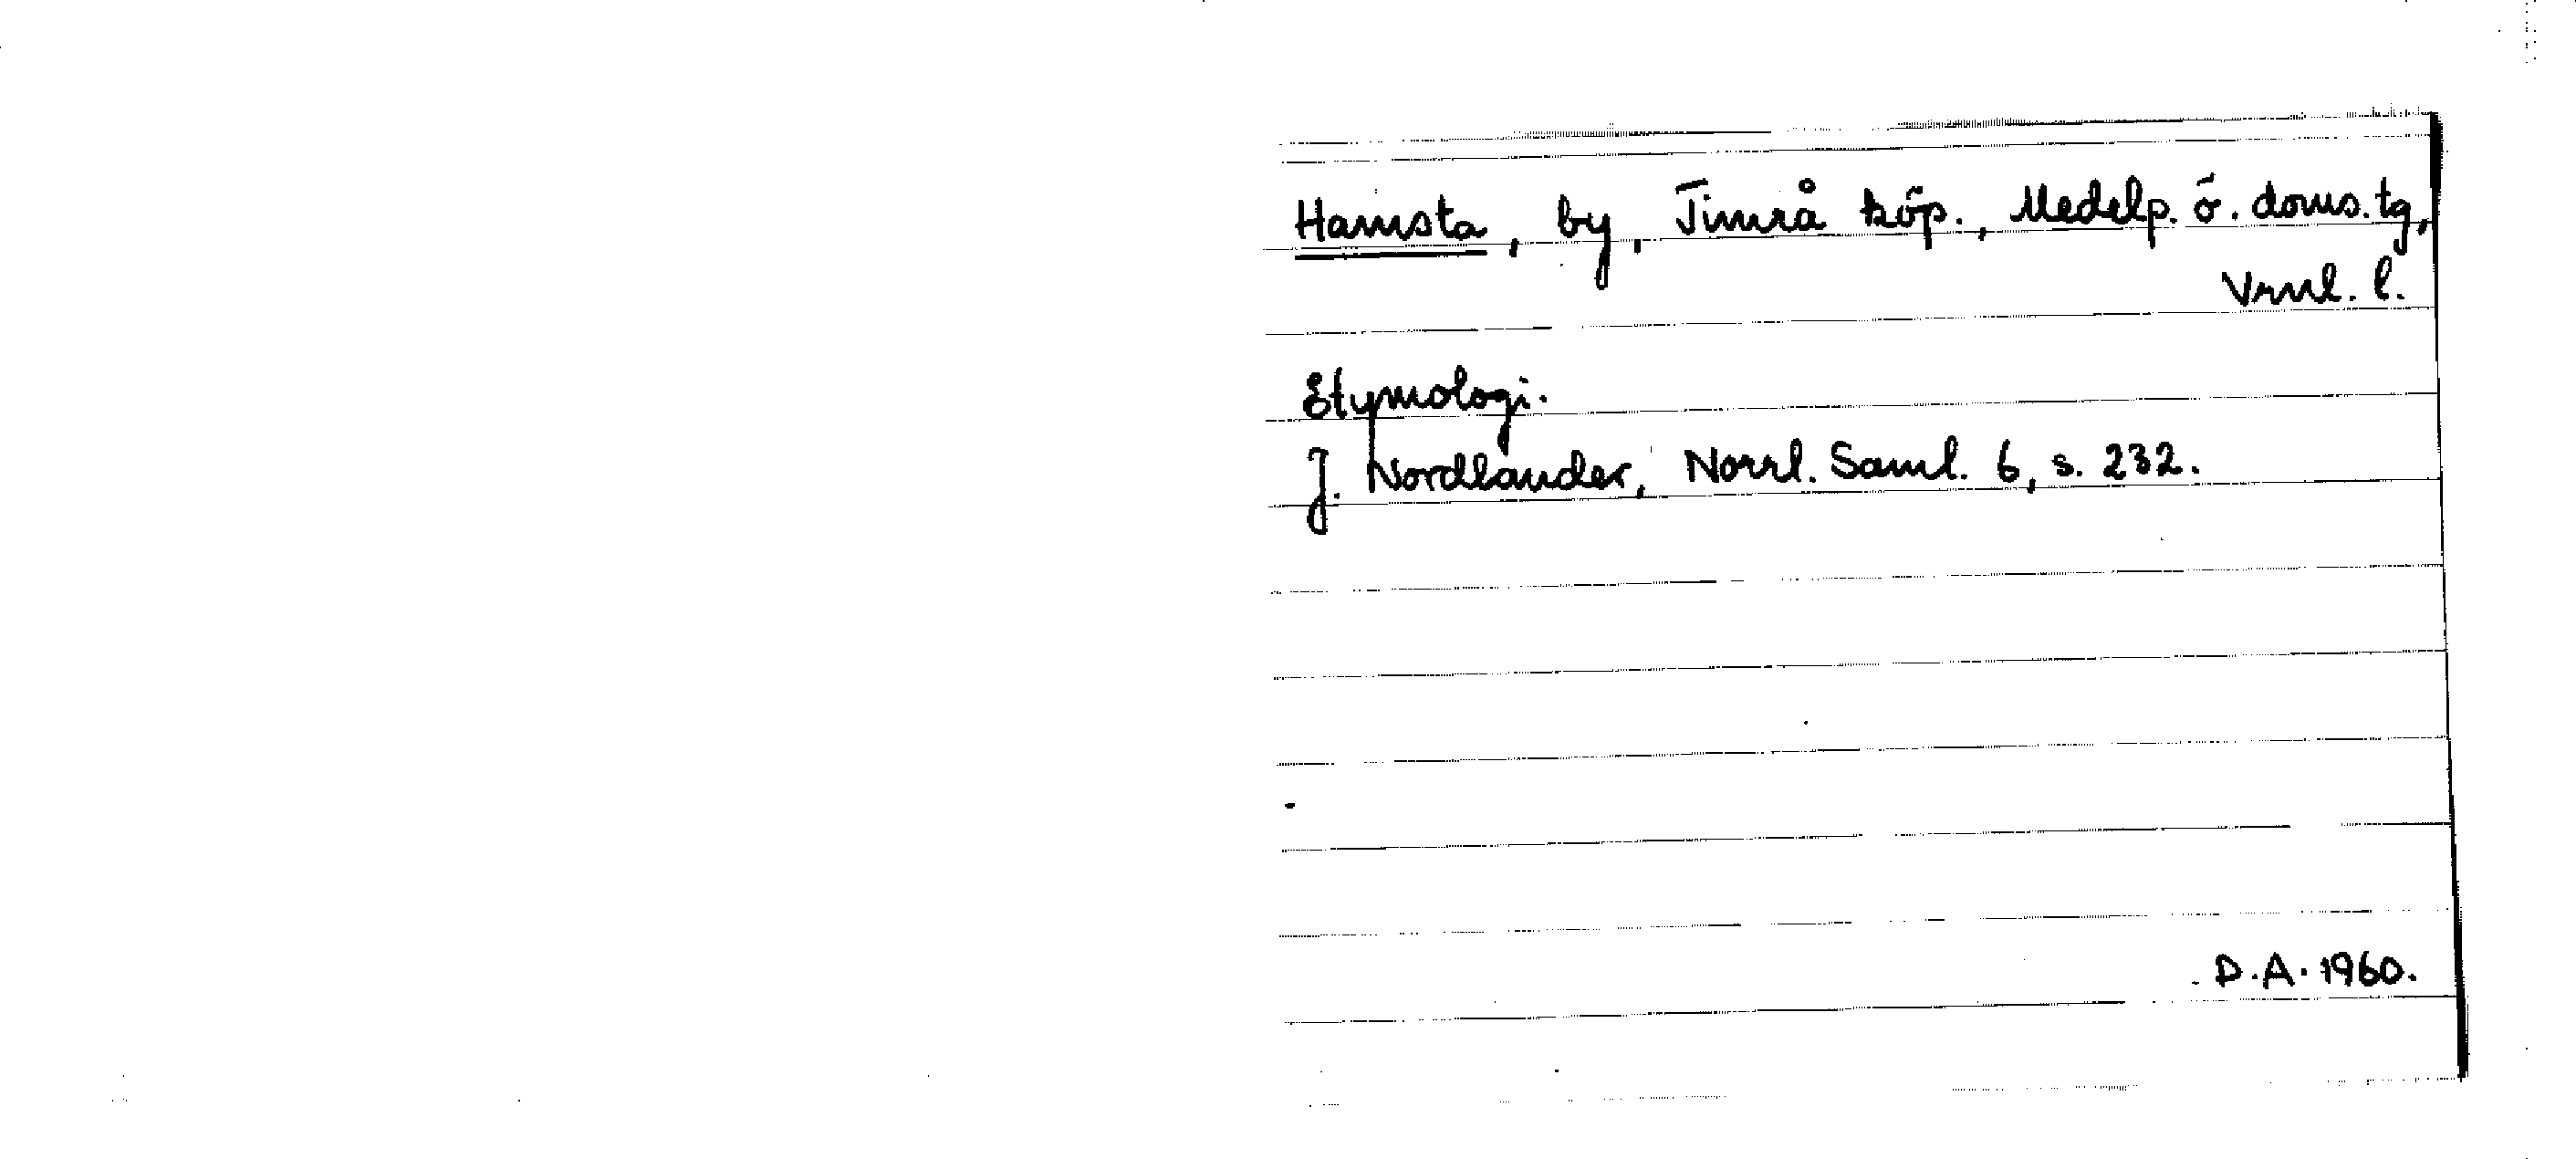 Hamsta, by, Timrå köp., Medelp. ö. doms. tg,
Vrnl. l.
Etymologi.
J. Nordlander, Norrl. Saml. 6, s. 232.
D.A. 1960.